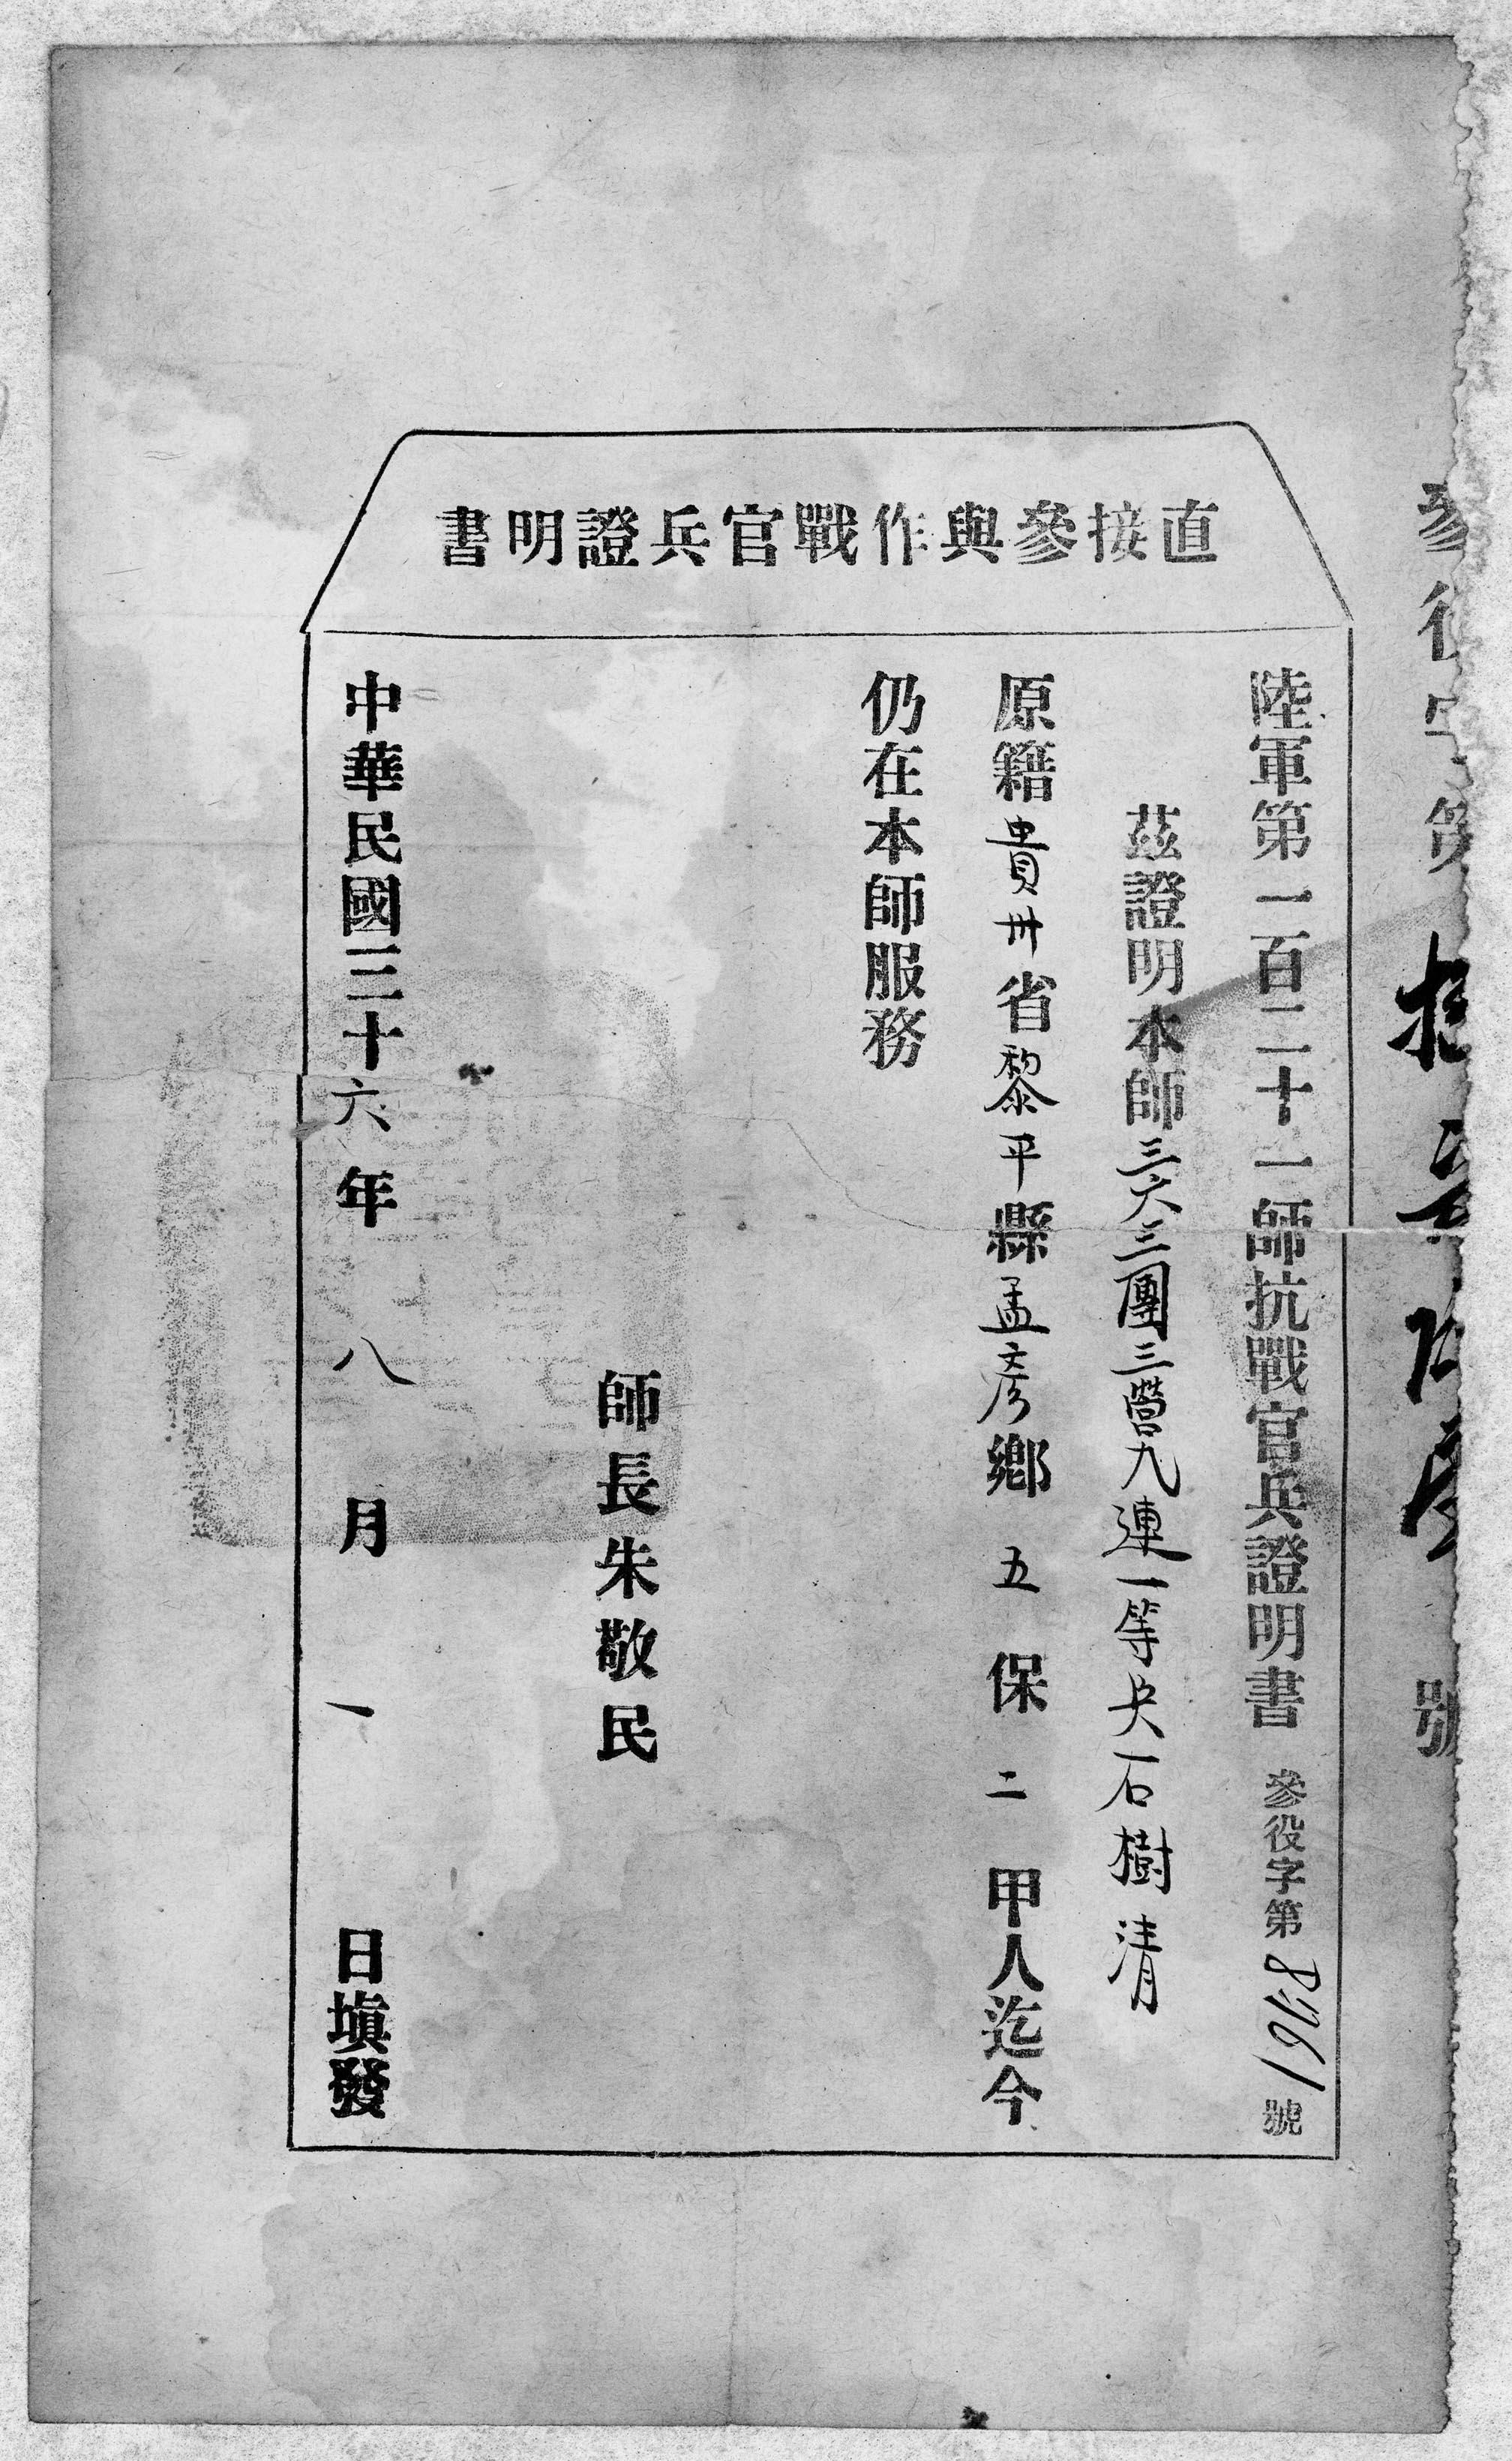 直接參與作戰官兵證明書
參役字第 號
陸軍第一百二十一師抗戰官兵證明書 參役字第8761號
茲證明本師三六三團三營九連一等兵石樹清
原籍貴州省黎平縣孟彥鄉五保二甲人迄今
仍在本師服務
師長朱敬民
中華民國三十六年八月一日塡發